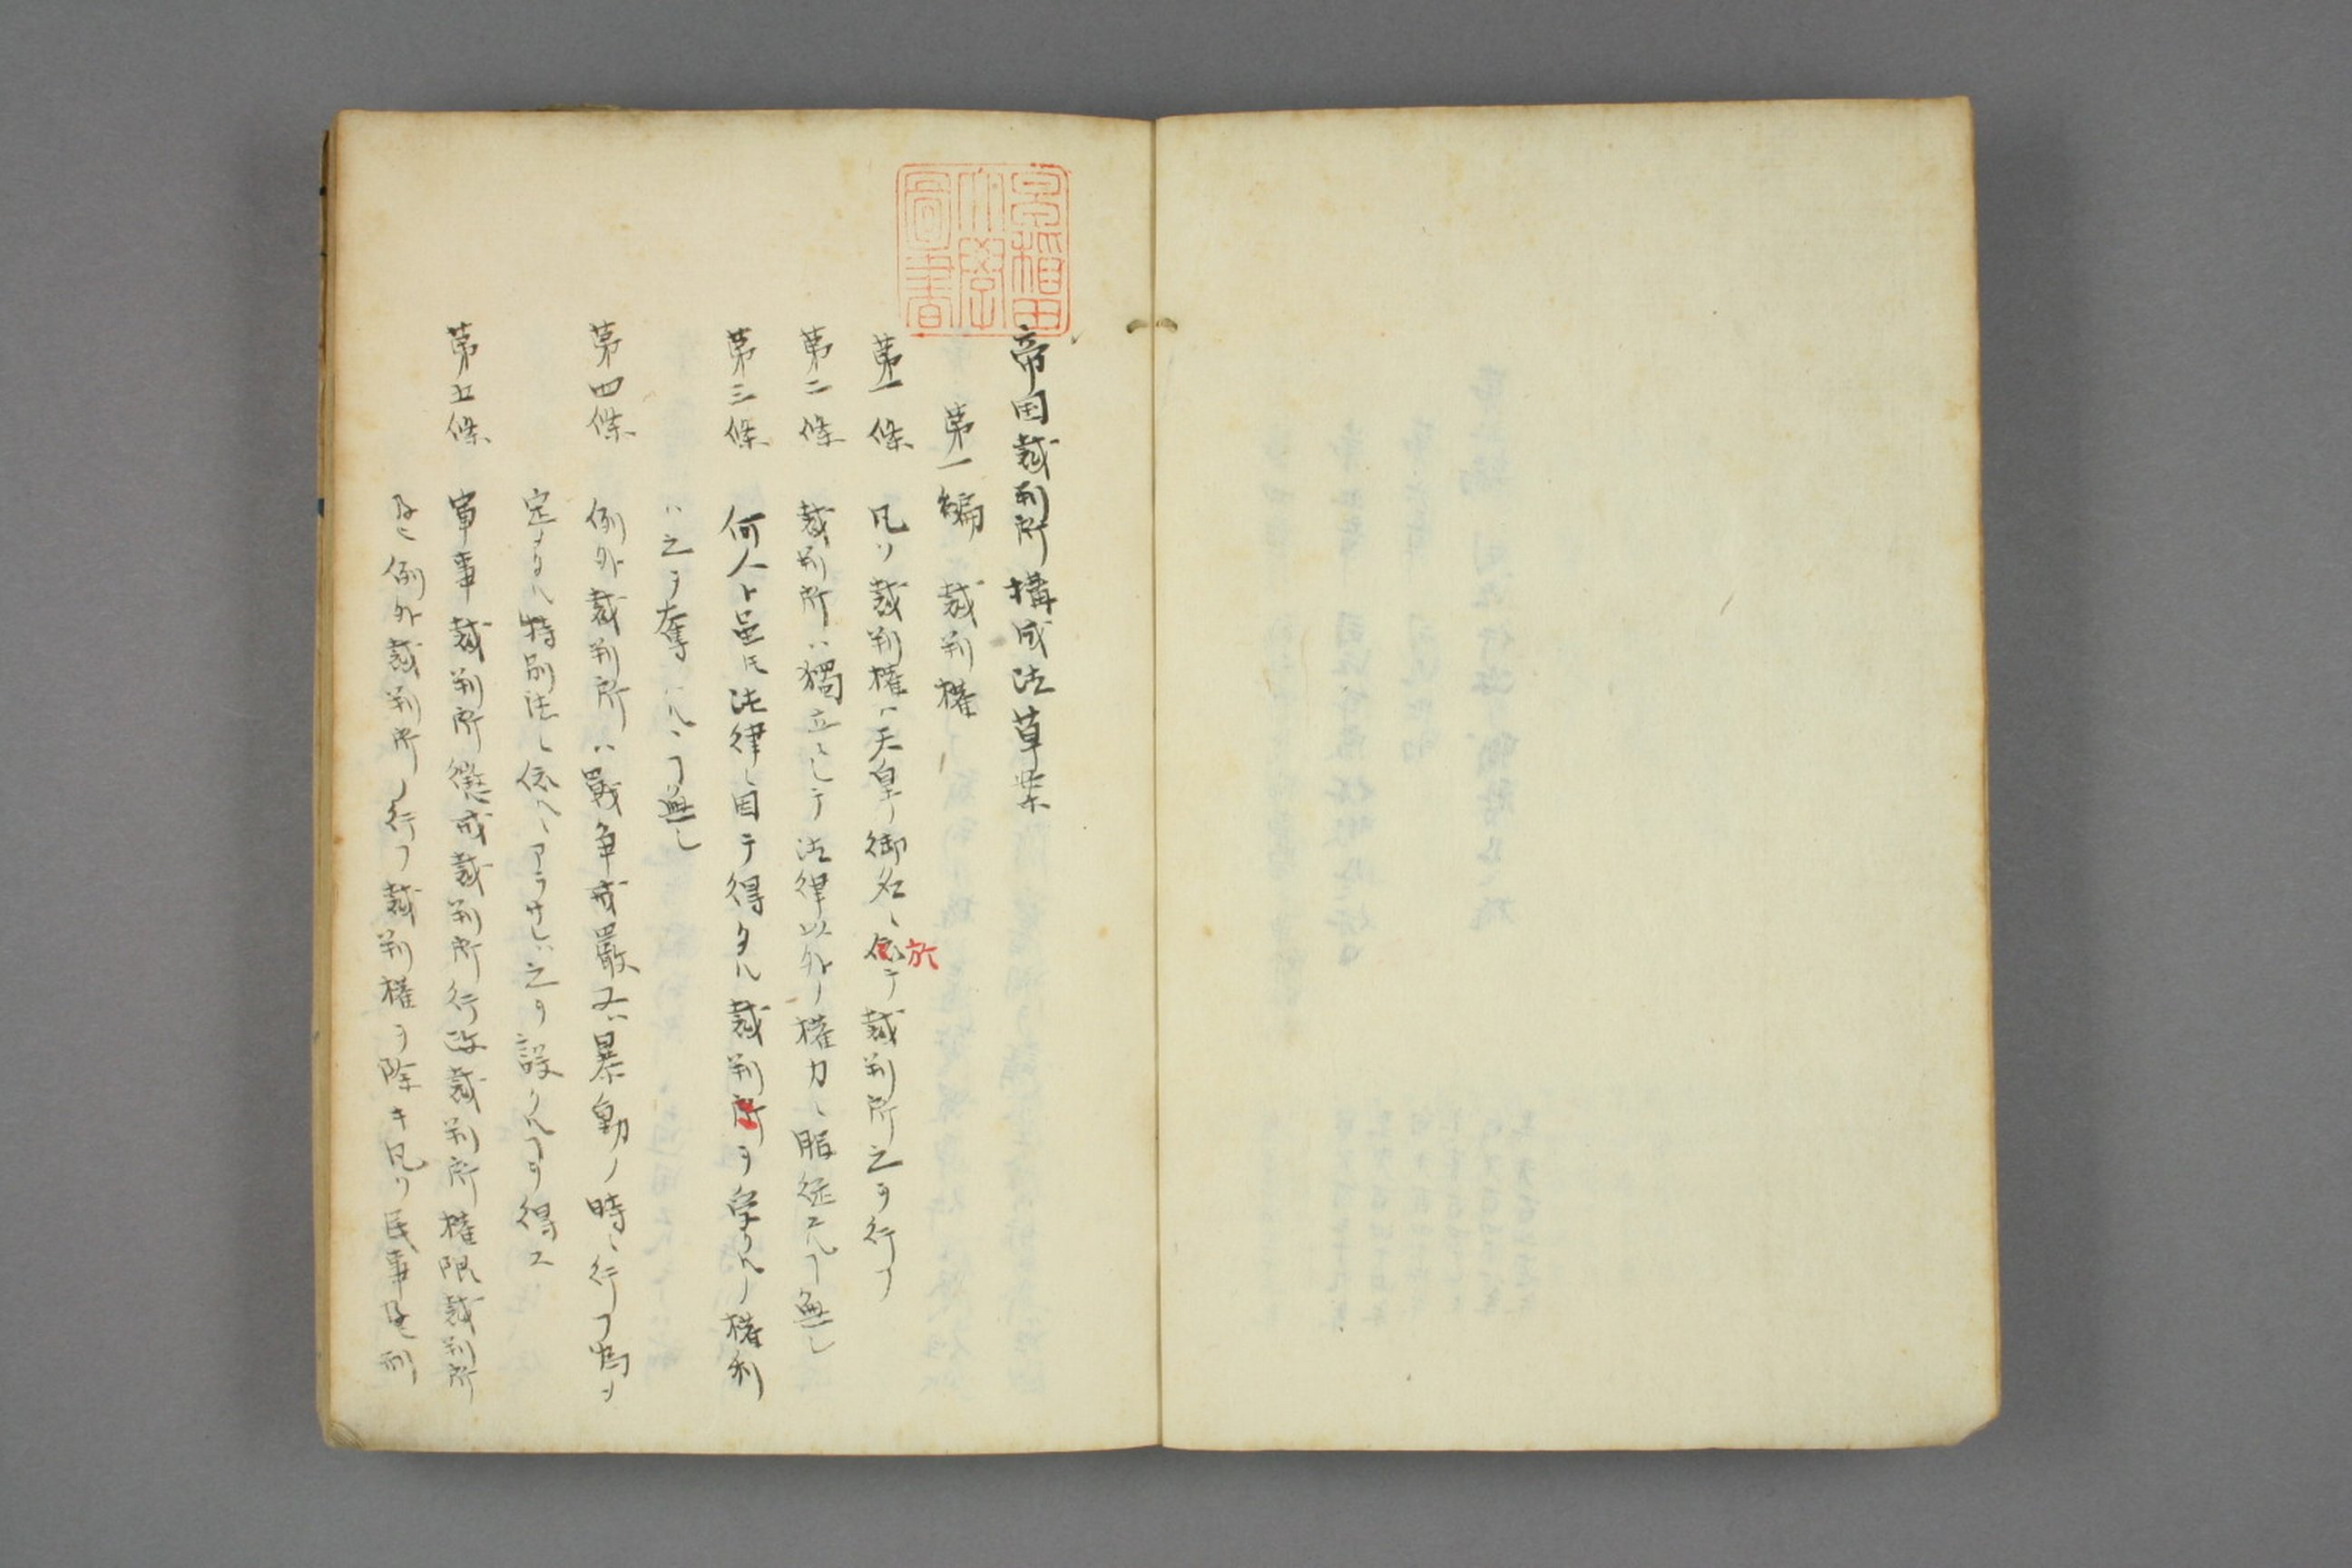 早稲田
大學
圖書
帝国裁判所構成法草案
第一編 裁判権
第一條 凡ソ裁判権ハ天皇ノ御名ニ依テ裁判所之ヲ行フ
於
第二條 裁判所ハ獨立ニシテ法律以外ノ権力ニ服従スルヿ無シ
第三條 何人ト雖𪜈法律ニ因テ得タル裁判所ヲ享クルノ権利
ハ之ヲ奪ハルヽヿ無シ
第四條 例外裁判所ハ戰争戒嚴又ハ暴動ノ時ニ行フ為メ
定メタル特別法ニ依ルニアラサレハ之ヲ設クルヿヲ得ス
第五條 軍事裁判所懲戒裁判所行政裁判所権限裁判所
及ヒ例外裁判所ノ行フ裁判権ヲ除キ凡ソ民事及ヒ刑